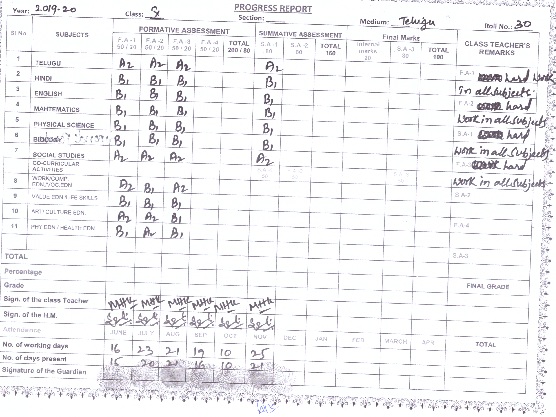 PROGRESS REPORT
Year: 2019-20 Class: 8 Section: Medium: Telugu Roll No.: 30
Sl No SUBJECTS FORMATIVE ASSESSMENT SUMMATIVE ASSESSMENT Final Marks CLASS TEACHER'S REMARKS
F.A-1 50/20 F.A-2 50/20 F.A-3 50/20 F.A-4 50/20 TOTAL 200/80 S.A-1 S.A-2 TOTAL Internal marks 20 S.A-3 80 TOTAL 100
1 TELUGU A2 A2 A2 A2
2 HINDI B1 B1 B1 B1
3 ENGLISH B1 B1 B1 B1
4 MATHEMATICS B1 B1 B1 B1
5 PHYSICAL SCIENCE B1 B1 B1 B1
6 B1 B1 B1 B1
7 SOCIAL STUDIES A2 A2 A2 A2
CO-CURRICULAR ACTIVITIES
8 WORK/COMP. EDN./VOC.EDN A2 B1 A2
9 VALUE EDN/LIFE SKILLS B1 B1 B1
10 ART/CULTURE EDN. A2 A2 B1
11 PHY EDN / HEALTH EDN B1 A2 B1
F.A-1 hard work
in all subjects
F.A-2 hard
work in all subjects
S.A-1 hard
work in all subjects
hard
work in all subjects
S.A-2
F.A-4
S.A-3
TOTAL
Percentage
Grade FINAL GRADE
Sign. of the class Teacher
Sign. of the H.M.
Attendance JUNE JULY AUG SEP OCT NOV DEC JAN FEB MARCH APR TOTAL
No. of working days 16 23 21 19 10 25
No. of days present 15 20 21 16 10 21
Signature of the Guardian